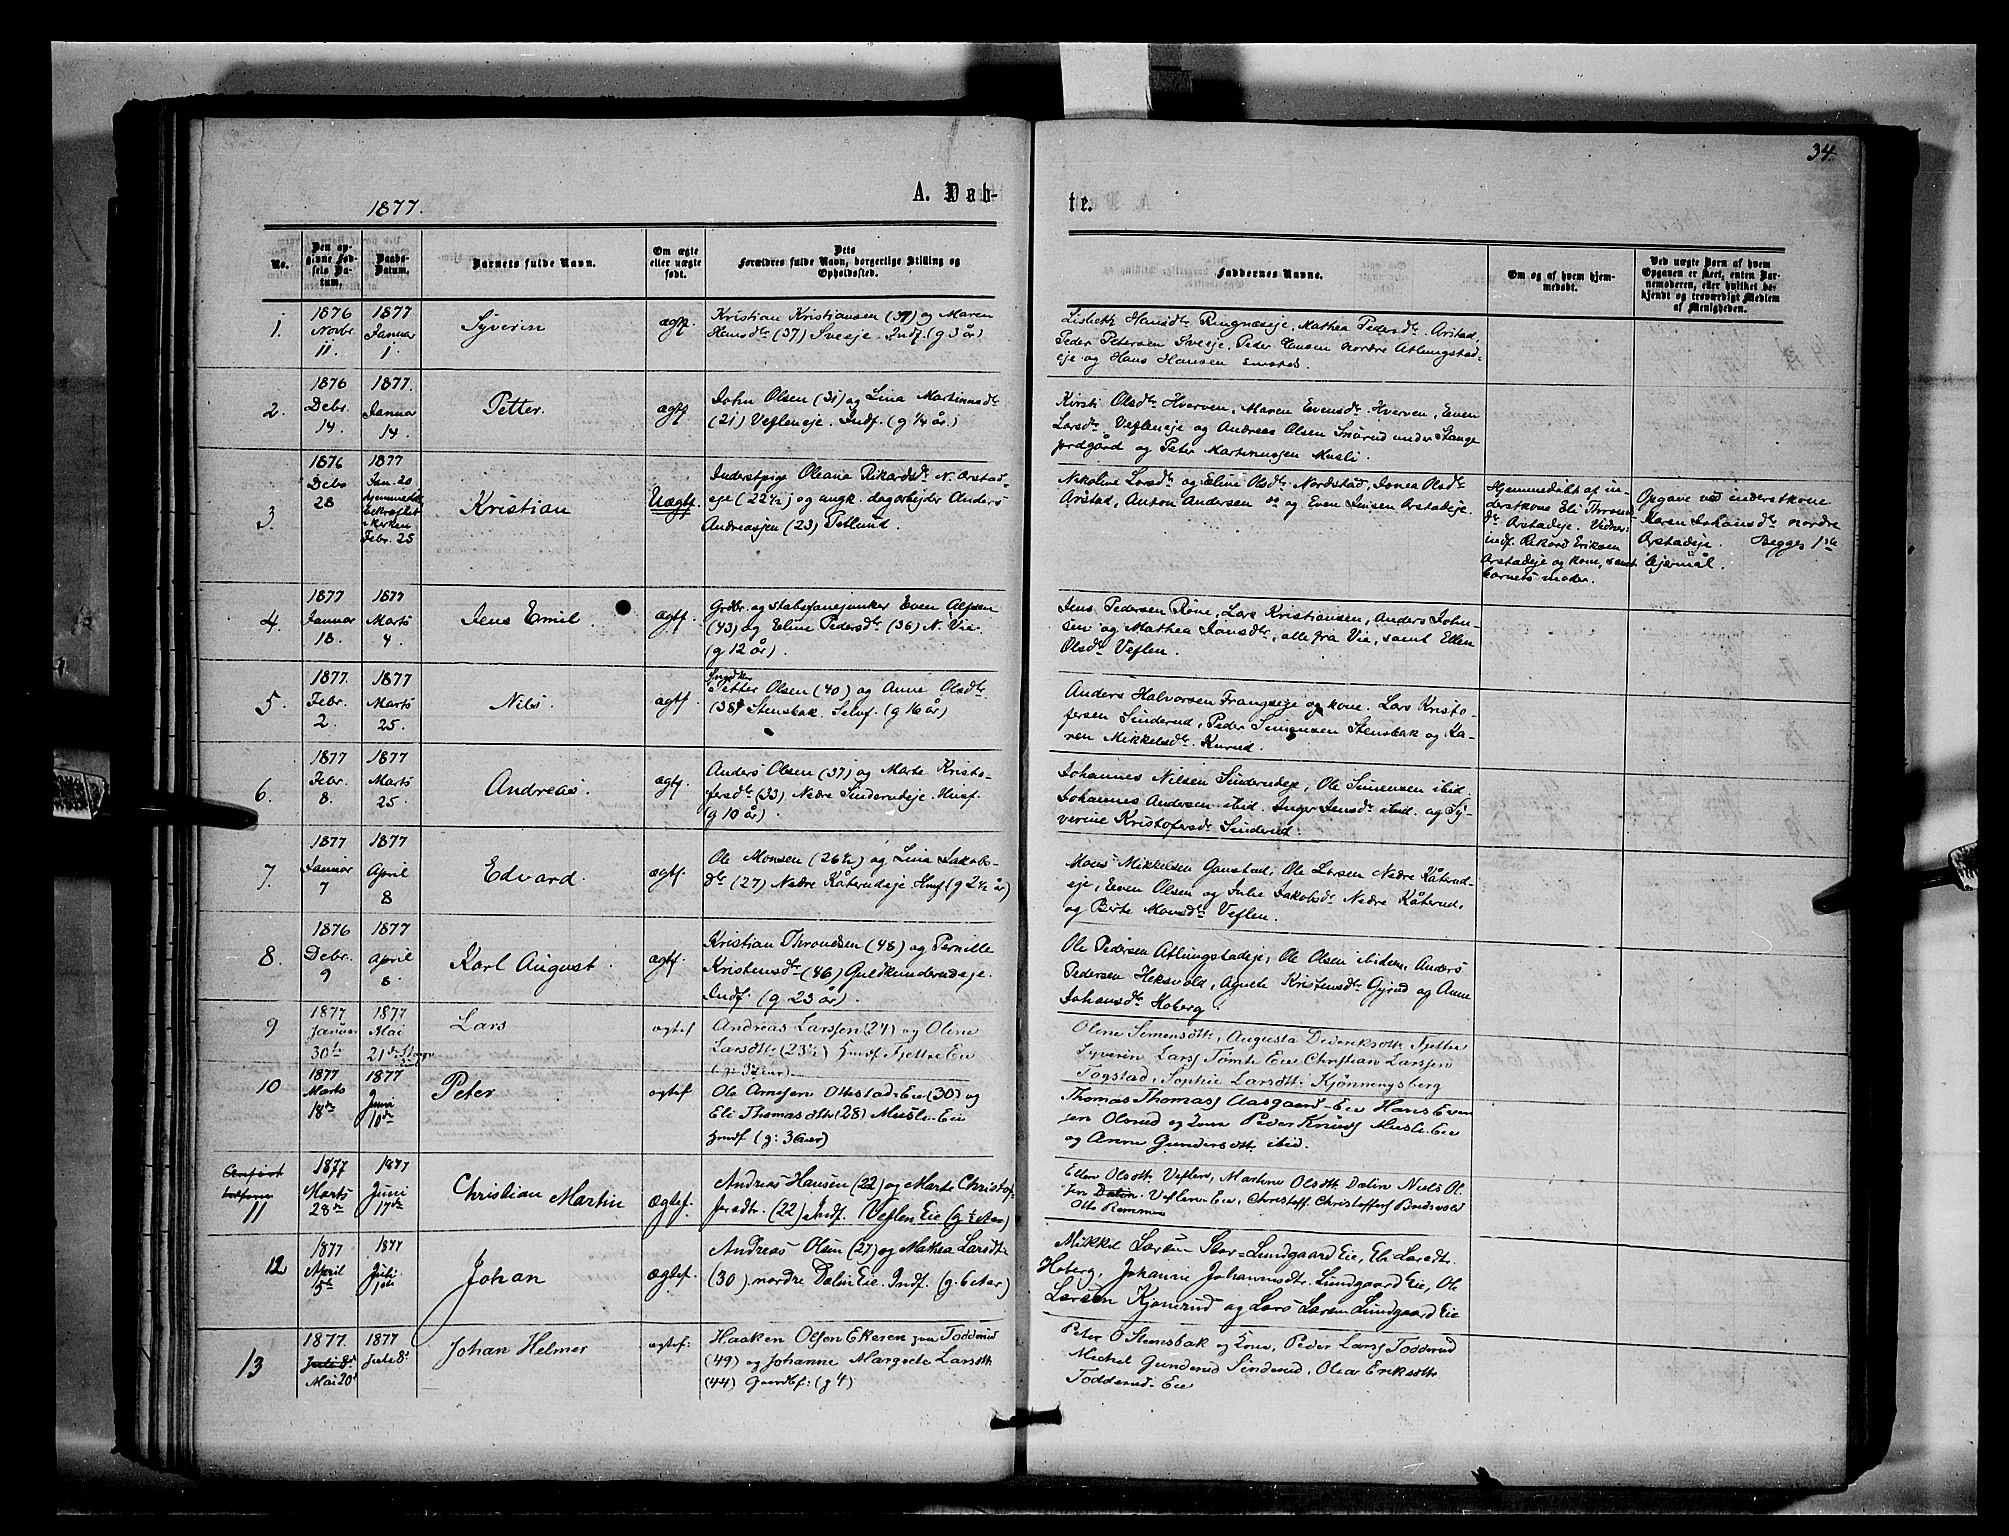 34.
1877.
A. Døb-
te.
No.
Den op-
givne Fød-
sels Da-
tum.
Daabs-
Datum.
Barnets fulde Navn.
Om ægte
eller uægte
født.
Dets
Forældres fulde Navn, borgerlige Stilling og
Opholdssted.
Faddernes Navne.
Om og af hvem hjem-
medøbt.
Ved uægte Børn af hvem
Opgaven er skeet, enten Bar-
nemoderen, eller hvilket be-
kjendt og troværdigt Medlem
af Menigheden.
1.
1876
Novbr.
11.
1877
Januar
1.
Syverin
ægtf.
Kristian Kristiansen (39) og Maren
Hansdtr (37) Sveeje. Indf. (g 3 år)
Lisbeth Hansdtr Ringnæseje, Mathea Pedersdtr Arstad,
Peder Petersen Sveeje, Peder Hansen nordre Atlungstad-
eje og Hans Hansen
2.
1876
Debr.
14.
1877.
Januar
14.
Petter.
ægtf.
John Olsen (31) og Lina Martinusdtr
(21) Vefleneje. Indf. (g ¼ år.)
Kirsti Olsdtr Hverven, Maren Evensdtr Hverven, Even
Larsdtr Vefleneje og Andreas Olsen Smørud under Stange
prdgård og Peter Martinussen Musli.
3.
1876
Debr
28
1877
Jan. 20
hjemmedøbt
Bekræftet
i kirken
Febr. 25
Kristian
Uægtf.
Inderstpige Oleana Rikardsdtr N. Arstad-
eje (22½) og ungk. dagarbejder Anders
Andreassen (23) Petlund.
Nikoline Larsdtr og Eline Olsdtr Nordstad, Jonea Olsdtr
Arstad, Anton Andersen og Even Jensen Arstadeje.
Hjemmedøbt af in-
derstkone Eli Thrond-
dtr Arstadeje. Vidner:
indf. Rikard Eriksen
Arstadeje og kone, samt
barnets moder.
Opgave ved inderstkone
Karen Johansdtr nordre
Arstadeje. Begges 1ste
lejermål.
4.
1877
Januar
18.
1877
Marts
4
Jens Emil.
ægtf.
Grdbr. og stabsfanejunker Even Alfsen
(43) og Eline Pedersdtr (36) N. Vie.
(g 12 år).
Jens Pedersen Røne, Lars Kristiansen, Anders John-
sen og Mathea Jonsdtr, alle fra Vie, samt Ellen
Olsdtr Veflen.
5.
1877.
Febr.
2.
1877
Marts
25.
Nils.
ægtf.
Petter Olsen (40) og Anne Olsdtr
(38) Stensbak. Selvf. (g 16 år)
Anders Halvorsen Frangseje og kone. Lars Kristo-
fersen Sinderud, Peder Simensen Stensbak og Ka-
ren Mikkelsdtr Kurud.
6.
1877
Febr.
8.
1877
Marts
25.
Andreas.
ægtf.
Anders Olsen (37) og Marte Kristo-
fersdtr (33) Nedre Sinderudeje. Husf.
(g 10 år).
Johannes Nilsen Sinderudeje, Ole Simensen ibid.
Johannes Andersen ibid. Inger Jensdtr ibid. og Sy-
verine Kristofersdtr Sinderud.
7.
1877
Januar
7
1877
April
8
Edvard.
ægtf.
Ole Monsen (26½) og Lina Jakobs-
dtr (27) Nedre Kåterudeje. Husf (g 2½ år)
Mons Mikkelsen Gaustad, Ole Larsen Nedre Kåterud-
eje, Even Olsen og Julie Jakobsdtr Nedre Kåterud,
og Berte Monsdtr Veflen.
8.
1876
Debr.
9
1877
April
8
Karl August.
ægtf.
Kristian Throndsen (48) og Pernille
Kristensdtr (46) Guldkunderudeje.
Indf. (g. 23 år).
Ole Pedersen Atlungstadeje, Ole Olsen ibidem, Anders
Pedersen Heksvold, Agnete Kristensdtr Gyrud og Anne
Johansdtr Hoberg.
9
1877
Januar
30te
1877
Mai
21de
Lars
ægtef
Andreas Larssen (24) og Oline
Larsdttr (23½) Husf Tjettre Eie
Oline Simensdttr, Augusta Dideriksdttr Tjettre
Syverin Larss Tømte Eie Christian Larssen
Togstad, Sophie Larsdttr Kjønningsberg
10
1877
Marts
18de
1877
Juni
10de
Peter
ægtef
Ole Arnesen Ottestad-Eie (30) og
Eli Thomasdttr (28) Musli-Eie
Husf (g: 3 Aar)
Thomas Thomass Aasgaard-Eie Hans Even
sen Olsrud og Kone Peder Knuds Musli-Eie
og Anne Gundersdttr ibid.
11
1877
Marts
28de
1877
Juni
17de
Christian Martin
Ægtef.
Andreas Hansen (22) og Marte Christof-
fersdtr. (22) Indf. Veflen Eie (g ½ Aar)
Ellen Olsdttr Veflen, Martine Olsdttr Dalin Niels Ol
sen Dalin Veflen-Eie, Christoff. Christoffers
Otto Rømmen
12
1877
April
5te
1877
Juli
1ste
Johan
Ægtef.
Andreas Olsen (27) og Mathea Larsdtr
(30) nordre Dalin Eie. Indf. (g. 6 Aar)
Mikkel Larsen Stor-Lundgaard Eie, Eli Larsdtr.
Hoberg, Johanne Johannesdtr. Lundgaard Eie, Ole
Larsen Kjonerud og Lars Larsen Lundgaard Eie
13
1877.
Juli 8de
Mai 20de
1877
Juli 8de
Johan Helmer
ægtef:
Haaken Olsen Ekeren paa Todderud
(49) og Johanne Margrete Larsdttr
(44) Gaardbf: (g 4)
Peter O Stensbak og Kone, Peder Larss Todderud
Michel Gundersd Sinderud, Olea Eriksdttr
Todderud-Eie